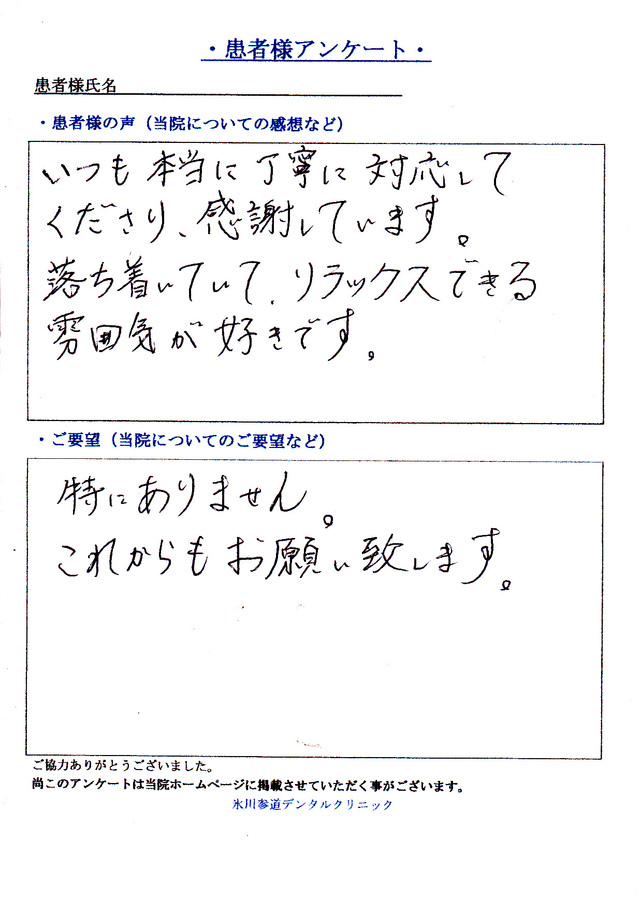 ・患者様アンケート・
患者様氏名
・患者様の声（当院についての感想など）
いつも本当に丁寧に対応して
くださり、感謝しています。
落ち着いていて、リラックスできる
雰囲気が好きです。
・ご要望（当院についてのご要望など）
特にありません。
これからもお願い致します。
ご協力ありがとうございました。
尚このアンケートは当院ホームページに掲載させていただく事がございます。
氷川参道デンタルクリニック